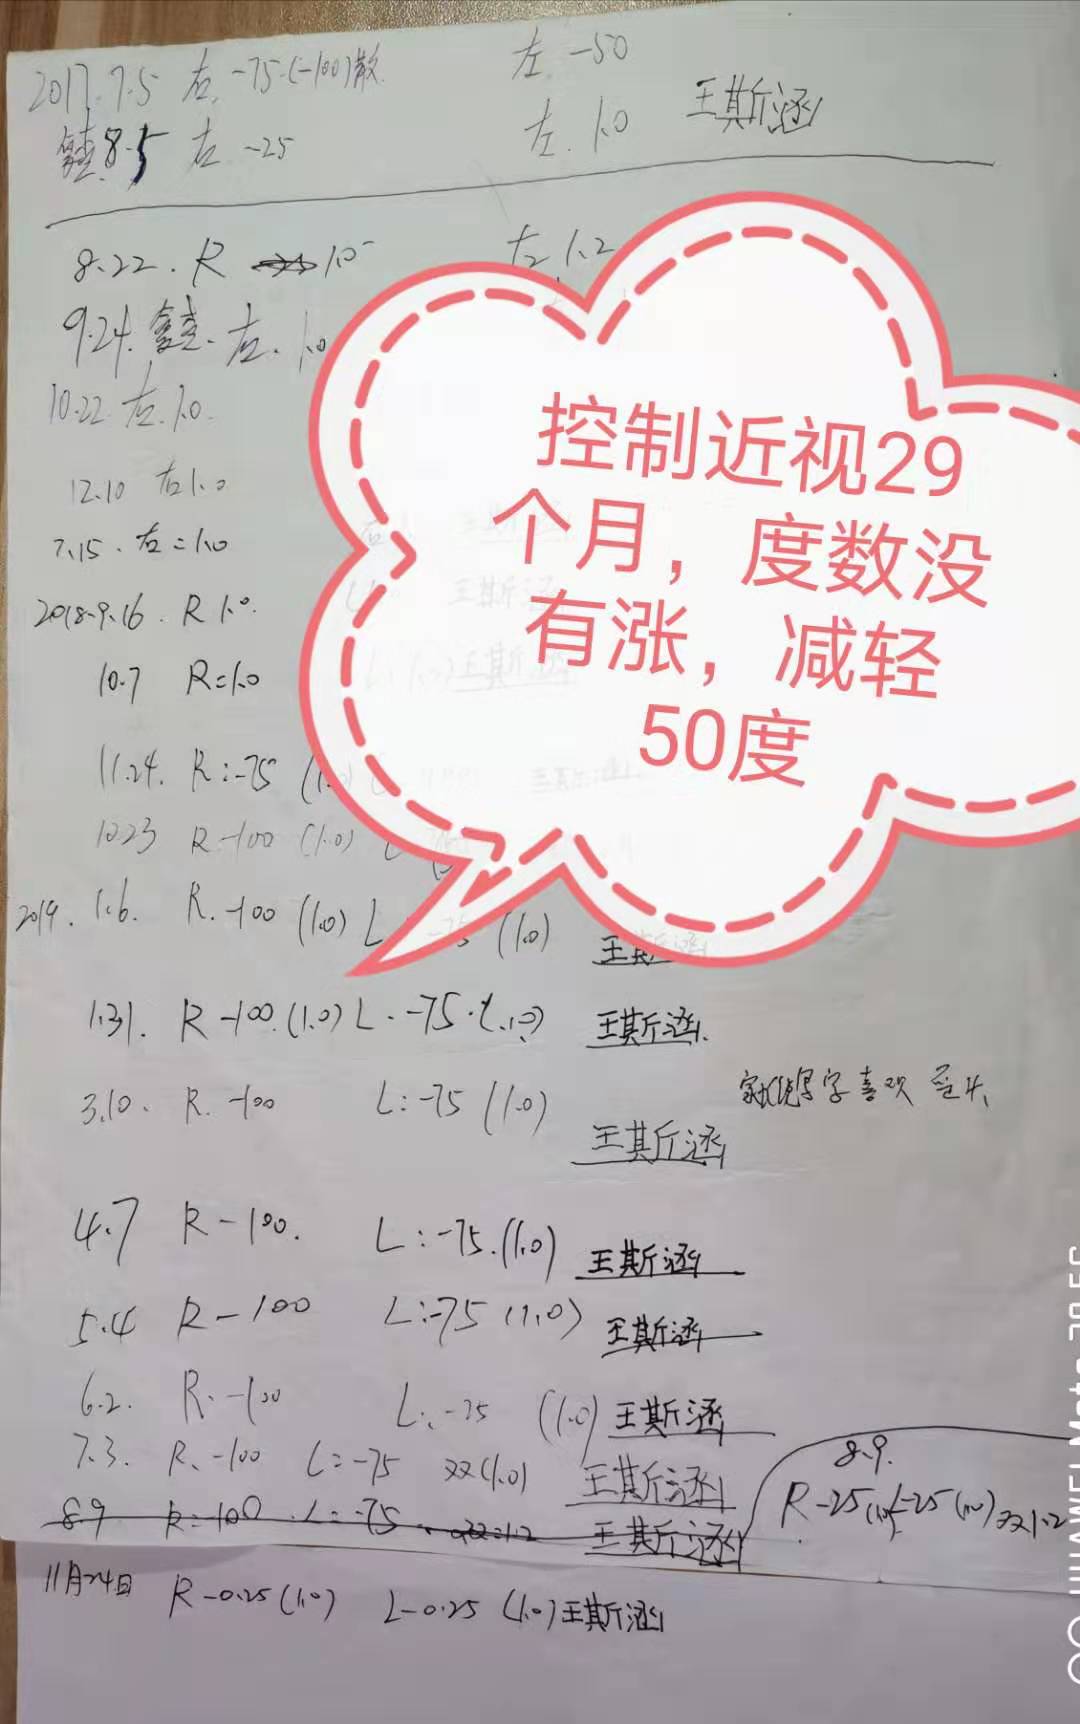 2017.7.5 右. -75.(-100)散 左. -50
8.5 右 -25 左. 1.0 王斯涵
8.22. R 1.0 左 1.2
9.24. 右. 1.0
10.22 右. 1.0.
12.10 右 1.0
7.15. 右=1.0
2018.9.16. R 1.0.
10.7 R=1.0
11.24. R:-75 (1.0)
10.23 R -100 (1.0)
2019. 1.6. R. -100 (1.0) L -75 (1.0) 王斯涵
1.31. R -100.(1.0) L. -75.(1.0) 王斯涵
3.10. R. -100 L:-75 (1.0) 王斯涵
写字喜欢
4.7 R -100. L:-75.(1.0) 王斯涵
5.4 R -100 L:-75 (1.0) 王斯涵
6.2. R. -100 L:-75 (1.0) 王斯涵
7.3. R. -100 L=-75 双(1.0) 王斯涵
8.9 R=-100 L=-75. 双=1.2 王斯涵
8.9.
R -25 (1.0) L-25 (1.0) 双1.2
11月24日 R -0.25 (1.0) L-0.25 (1.0) 王斯涵
控制近视29
个月，度数没
有涨，减轻
50度
HUAWEI Mate 20